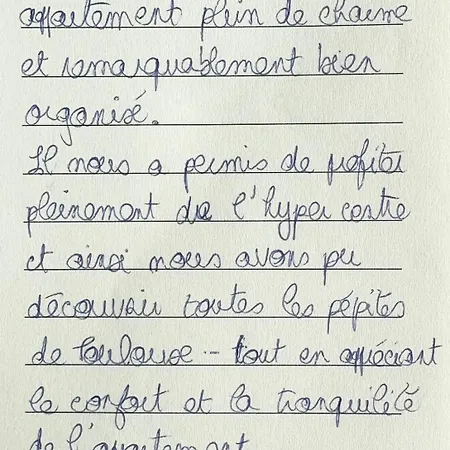 appartement plein de charme
et remarquablement bien
organisé.
Il nous a permis de profiter
pleinement de l'hyper centre
et ainsi nous avons pu
découvrir toutes les pépites
de Toulouse - tout en appréciant
le confort et la tranquilité
de l'appartement